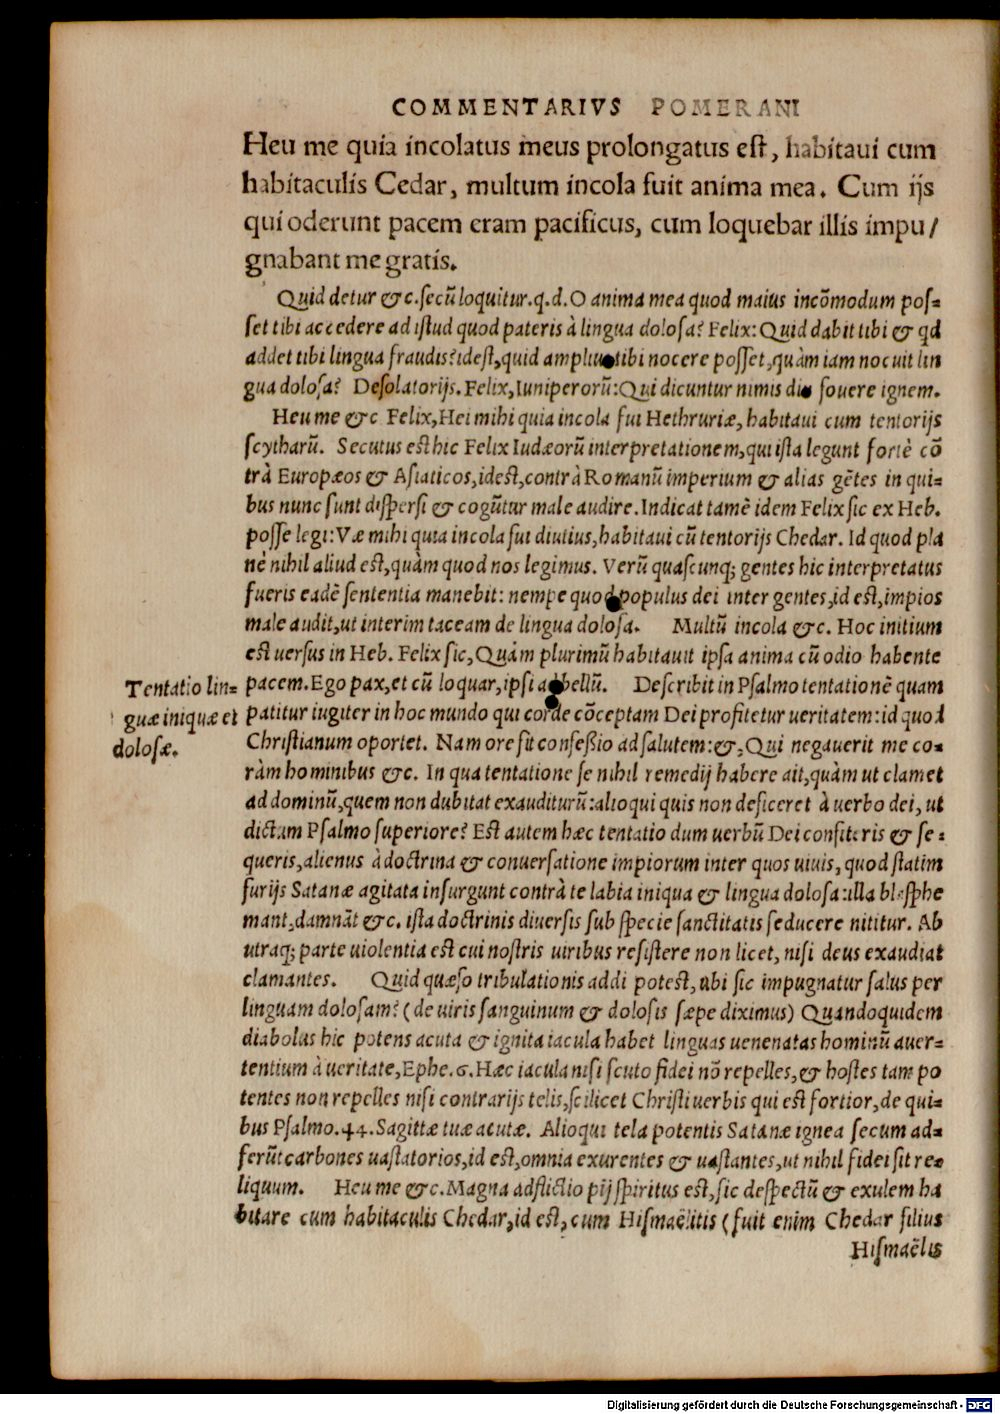 COMMENTARIVS POMERANI
Heu me quia incolatus meus prolongatus est, habitaui cum
habitaculis Cedar, multum incola fuit anima mea. Cum ijs
qui oderunt pacem eram pacificus, cum loquebar illis impu/
gnabant me gratis.
Quid detur &c. secū loquitur. q.d. O anima mea quod maius incōmodum pos=
set tibi accedere ad istud quod pateris à lingua dolosa? Felix: Quid dabit tibi & qd
addet tibi lingua fraudis? idest, quid ampliu tibi nocere posset, quàm iam nocuit lin
gua dolosa? Desolatorijs. Felix, Iuniperorū: Qui dicuntur nimis diu fouere ignem.
Heu me &c Felix, Hei mihi quia incola fui Hethruriæ, habitaui cum tentorijs
scytharū. Secutus est hic Felix Iudæorū interpretationem, qui ista legunt fortè cō
trà Europæos & Asiaticos, idest, contrà Romanū imperium & alias gētes in qui=
bus nunc sunt dispersi & cogūtur male audire. Indicat tamē idem Felix sic ex Heb.
posse legi: Væ mihi quia incola fui diutius, habitaui cū tentorijs Chedar. Id quod pla
nè nihil aliud est, quàm quod nos legimus. Verū quascunq; gentes hic interpretatus
fueris eadē sententia manebit: nempe quod populus dei inter gentes, id est, impios
male audit, ut interim taceam de lingua dolosa. Multū incola &c. Hoc initium
est uersus in Heb. Felix sic, Quàm plurimū habitauit ipsa anima cū odio habente
Tentatio lin=
guæ iniquæ et
dolosæ.
pacem. Ego pax, et cū loquar, ipsi ad bellū. Describit in Psalmo tentationē quam
patitur iugiter in hoc mundo qui corde cōceptam Dei profitetur ueritatem: id quod
Christianum oportet. Nam ore fit confeßio ad salutem: &, Qui negauerit me co=
ràm hominibus &c. In qua tentatione se nihil remedij habere ait, quàm ut clamet
ad dominū, quem non dubitat exauditurū: alioqui quis non deficeret à uerbo dei, ut
dictum Psalmo superiore? Est autem hæc tentatio dum uerbū Dei confiteris & se=
queris, alienus à doctrina & conuersatione impiorum inter quos uiuis, quod statim
furijs Satanæ agitata insurgunt contrà te labia iniqua & lingua dolosa: illa blasphe
mant, damnāt &c. ista doctrinis diuersis sub specie sanctitatis seducere nititur. Ab
utraq; parte uiolentia est cui nostris uiribus resistere non licet, nisi deus exaudiat
clamantes. Quid quæso tribulationis addi potest, ubi sic impugnatur salus per
linguam dolosam? (de uiris sanguinum & dolosis sæpe diximus) Quandoquidem
diabolus hic potens acuta & ignita iacula habet linguas uenenatas hominū auer=
tentium à ueritate, Ephe. 6. Hæc iacula nisi scuto fidei nō repelles, & hostes tam po
tentes non repelles nisi contrarijs telis, scilicet Christi uerbis qui est fortior, de qui=
bus Psalmo. 44. Sagittæ tuæ acutæ. Alioqui tela potentis Satanæ ignea secum ad=
ferūt carbones uastatorios, id est, omnia exurentes & uastantes, ut nihil fidei sit re=
liquum. Heu me &c. Magna adflictio pij spiritus est, sic despectū & exulem ha
bitare cum habitaculis Chedar, id est, cum Hismaëlitis (fuit enim Chedar filius
Hismaëlis
Digitalisierung gefördert durch die Deutsche Forschungsgemeinschaft - DFG